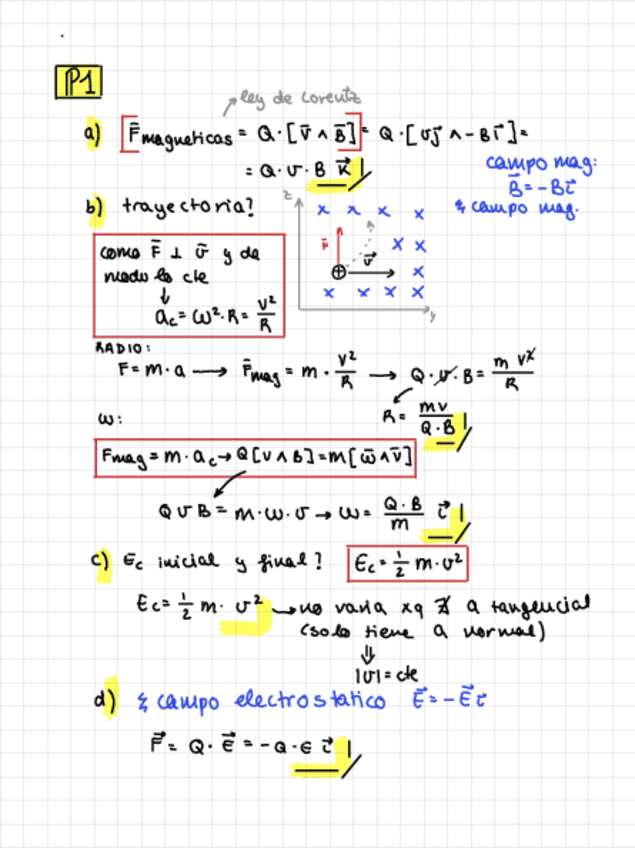 P1
ley de Lorentz
a) F̄magneticas = Q·[v̄ ∧ B̄] = Q·[vj⃗ ∧ -Bi⃗] =
= Q·v·B k⃗
campo mag:
B̄ = -Bi⃗
campo mag.
b) trayectoria?
z
x x x x
F̄
x x
v⃗
x
x x x x
y
como F̄ ⊥ v̄ y de
modulo cte
↓
ac = ω²·R = v²/R
RADIO:
F = m·a → F̄mag = m·v²/R → Q·v·B = m v²/R
R = mv/Q·B
ω:
Fmag = m·ac → Q[v∧B] = m[ω̄∧v̄]
QvB = m·ω·v → ω = Q·B/m i⃗
c) Ec inicial y final? Ec = 1/2 m·v²
Ec = 1/2 m·v² → no varia xq ∄ a tangencial
(solo tiene a normal)
⇓
|v| = cte
d) campo electrostatico E⃗ = -E i⃗
F⃗ = Q·E⃗ = -Q·E i⃗